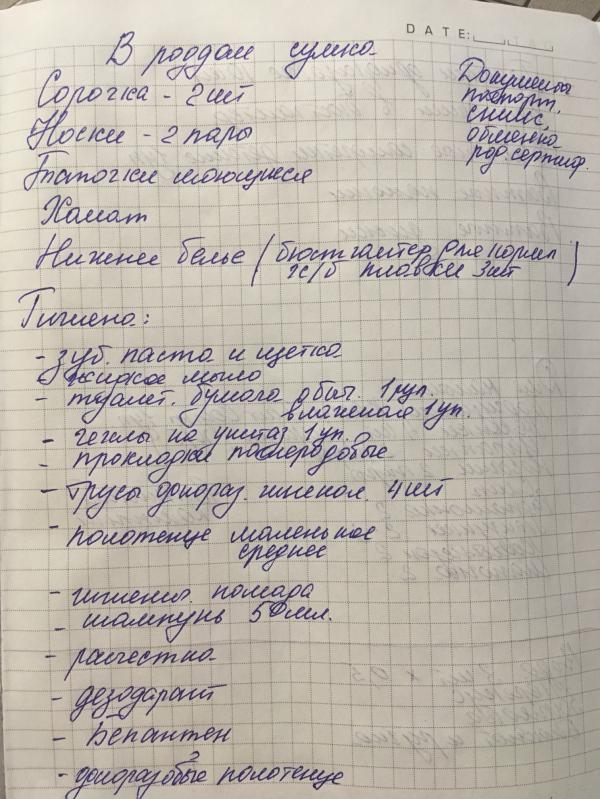 DATE:
В роддом сумка
Сорочка - 2 шт
Носки - 2 пары
Тапочки моющиеся
Халат
Нижнее белье (бюстгалтер для кормл
х/б плавки 3 шт)
Документы
паспорт,
снилс,
обменка
род. сертиф.
Гигиена:
- зуб. паста и щетка
- жидкое мыло
- туалет. бумага обыч. 1 рул.
влажная 1 уп.
- чехлы на унитаз 1 уп.
- прокладки послеродовые
- трусы однораз. гинекол. 4 шт
- полотенце маленькое
среднее
- гигиенич. помада
- шампунь 50 мл.
- расчестка
- дезодарант
- Бепантен
- одноразовые полотенце